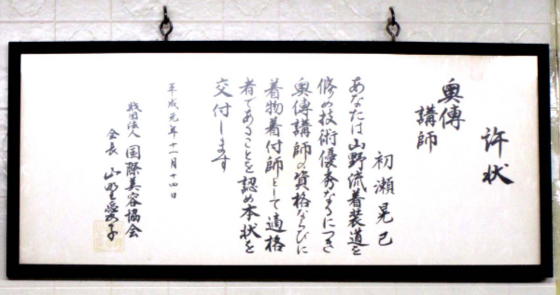 許状
奥傳
講師
初瀬晃己
あなたは山野流着装道を
修め技術優秀なるにつき
奥傳講師の資格ならびに
着物着付師として適格
者であることを認め本状を
交付します
平成元年十一月十四日
財団法人 国際美容協会
会長 山野愛子